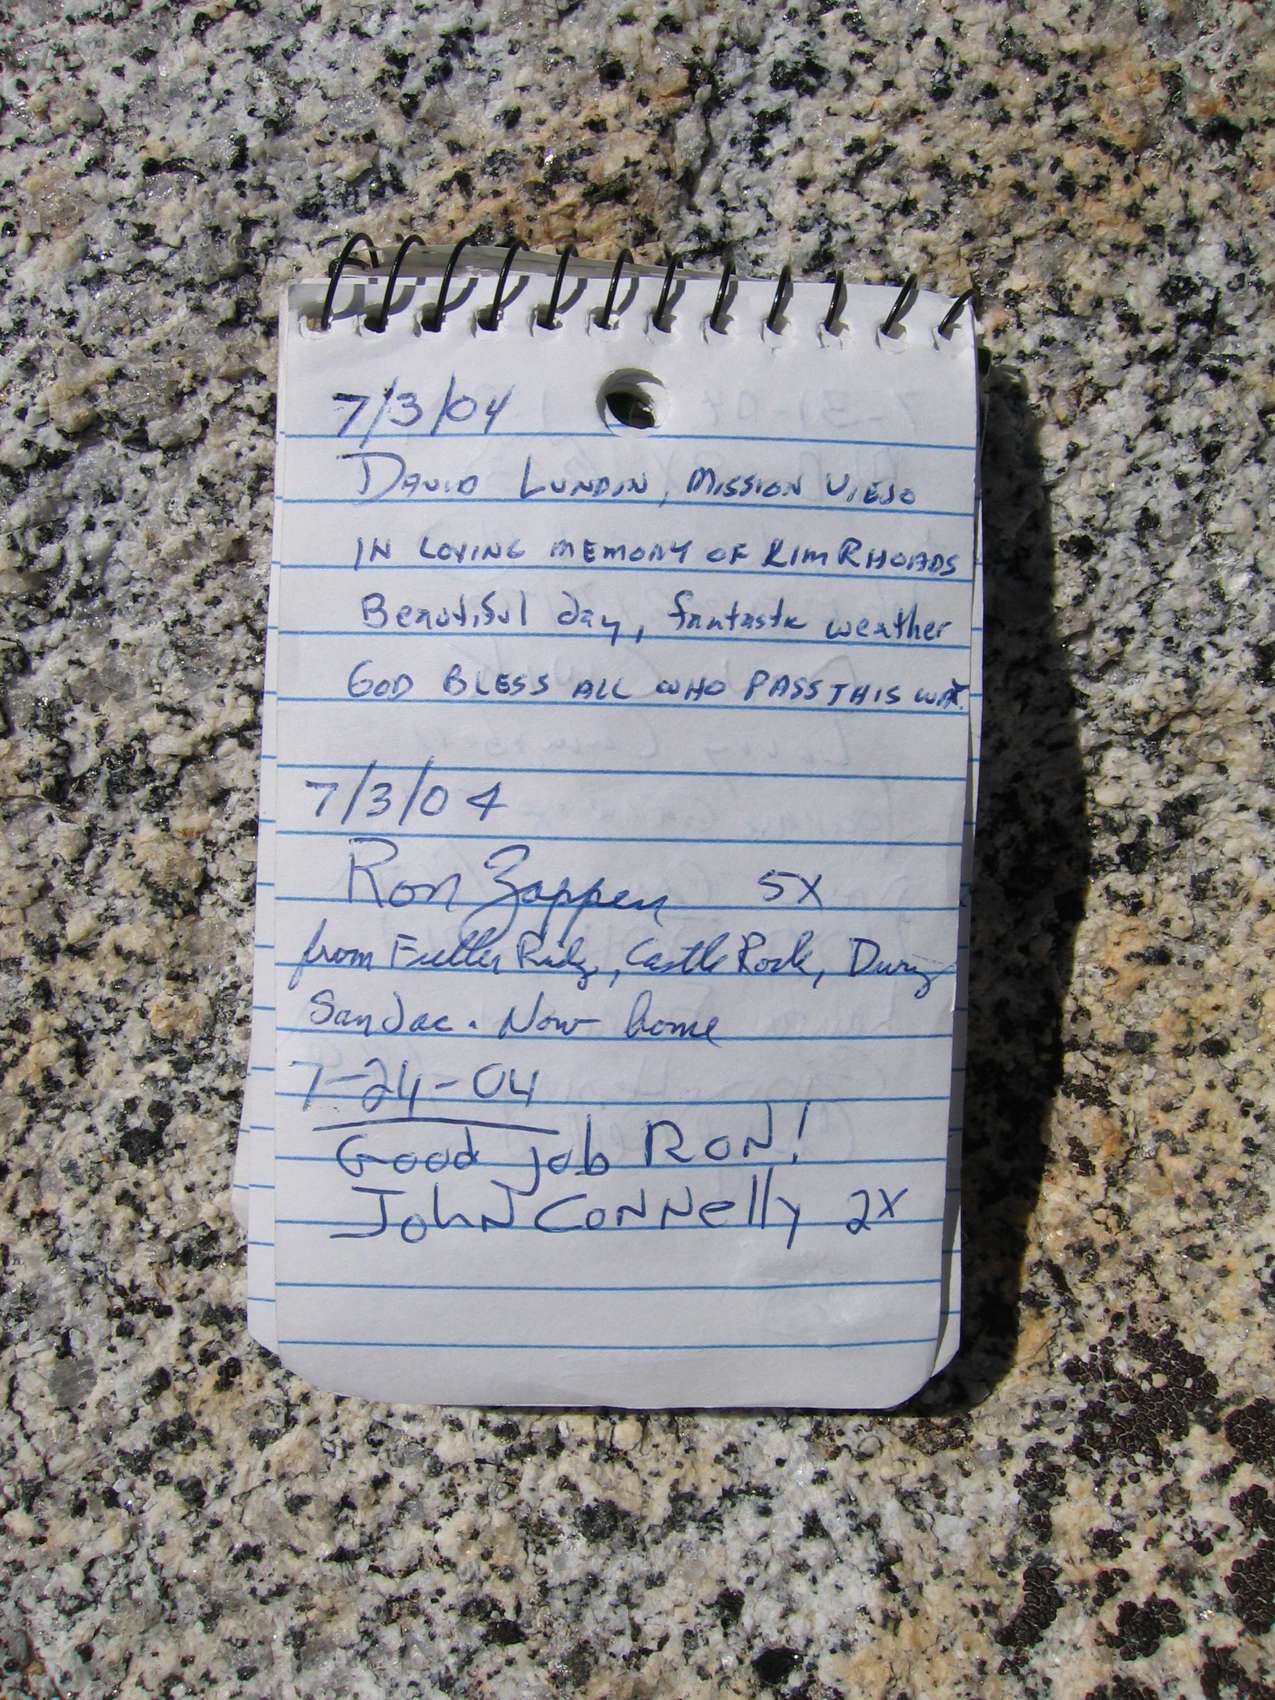 7/3/04
David Lundin, Mission Viejo
IN LOVING MEMORY OF KIM RHOADS
Beautiful day, fantastic weather
GOD BLESS ALL WHO PASS THIS WAY.
7/3/04
Ron Zappen 5X
from Fuller Ridge, Castle Rock,
San Jac. Now home
7-24-04
Good job RON!
John Connelly 2X